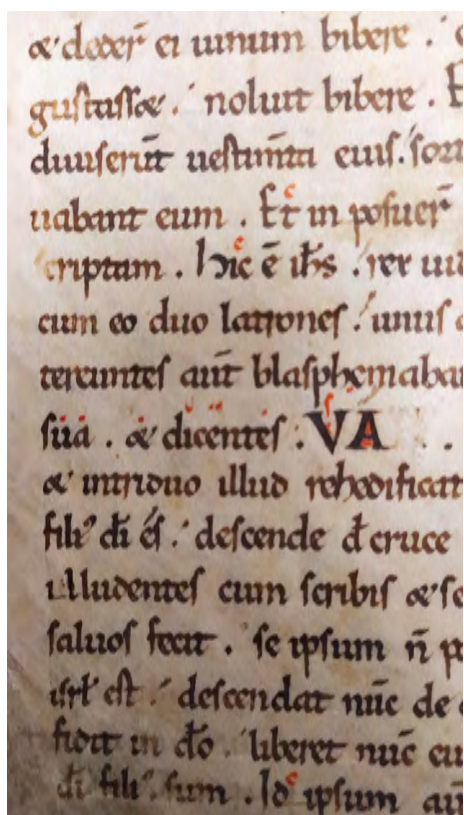 & deder̄ ei uinum bibere .
gustass& . noluit bibere . E
diuiserūt uestim̄ta eius . sort
uabant eum . Et in posuer̄
criptam . hic ē ih̄s . rex iud
cum eo duo latrones . unus
tereuntes aūt blasphemaba
sūā . & dicentes : VA . .
& in triduo illud rehedificat
fili᾽ dī es . descende đ cruce
illudentes cum scribis & se
saluos fecit . se ipsum n̄ po
isrl̄ est . descendat nūc de
fidit in dō . liberet nūc eu
dī fili᾽ sum . Id ipsum aū